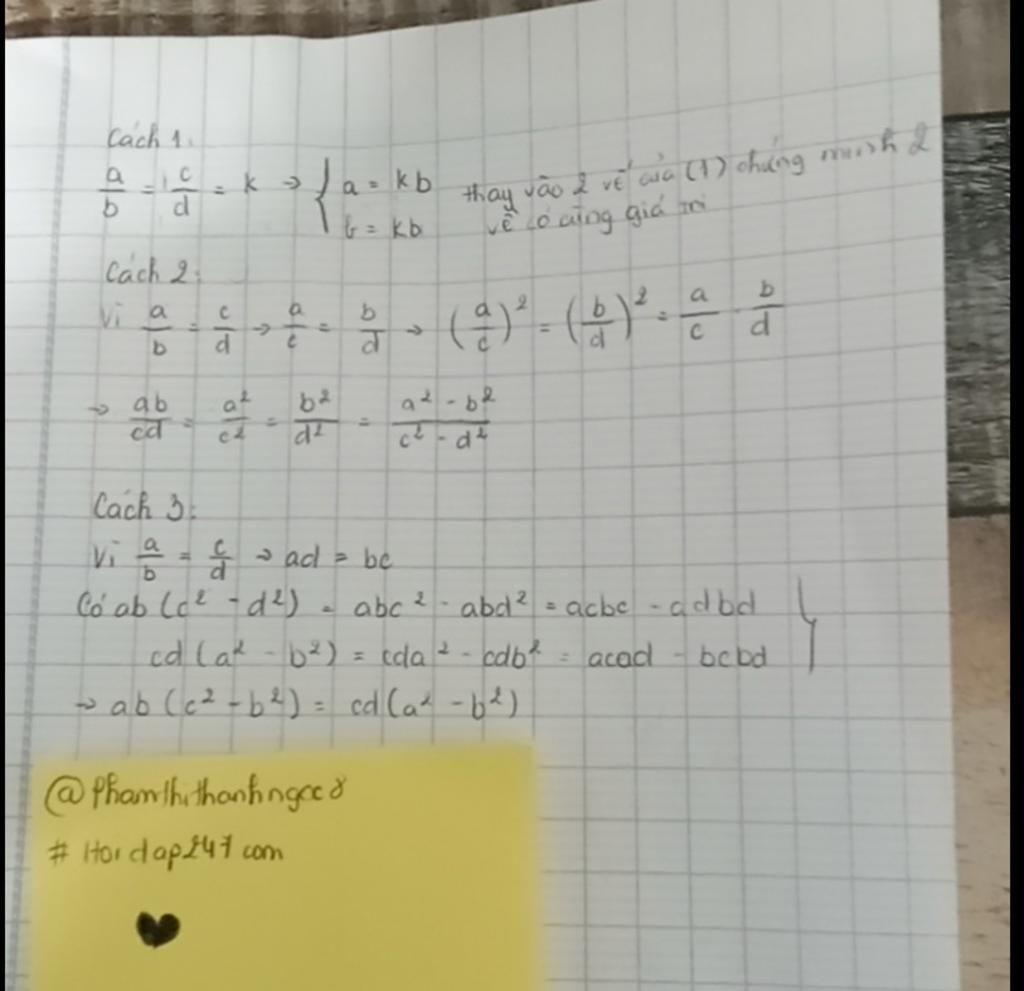 Cách 1.
a/b = c/d = k → { a = kb thay vào 2 vế của (1) chứng minh 2
b = kb vế có cùng giá trị
Cách 2:
Vì a/b = c/d → a/c = b/d → (a/c)² = (b/d)² = a/c · b/d
→ ab/cd = a²/c² = b²/d² = a² - b²/c² - d²
Cách 3:
Vì a/b = c/d → ad = bc
Có ab (c² - d²) = abc² - abd² = acbc - adbd }
cd (a² - b²) = cda² - cdb² = acad - bcbd
→ ab (c² - b²) = cd (a² - b²)
@ Phamthithanhngoc8
# Hoidap247 com